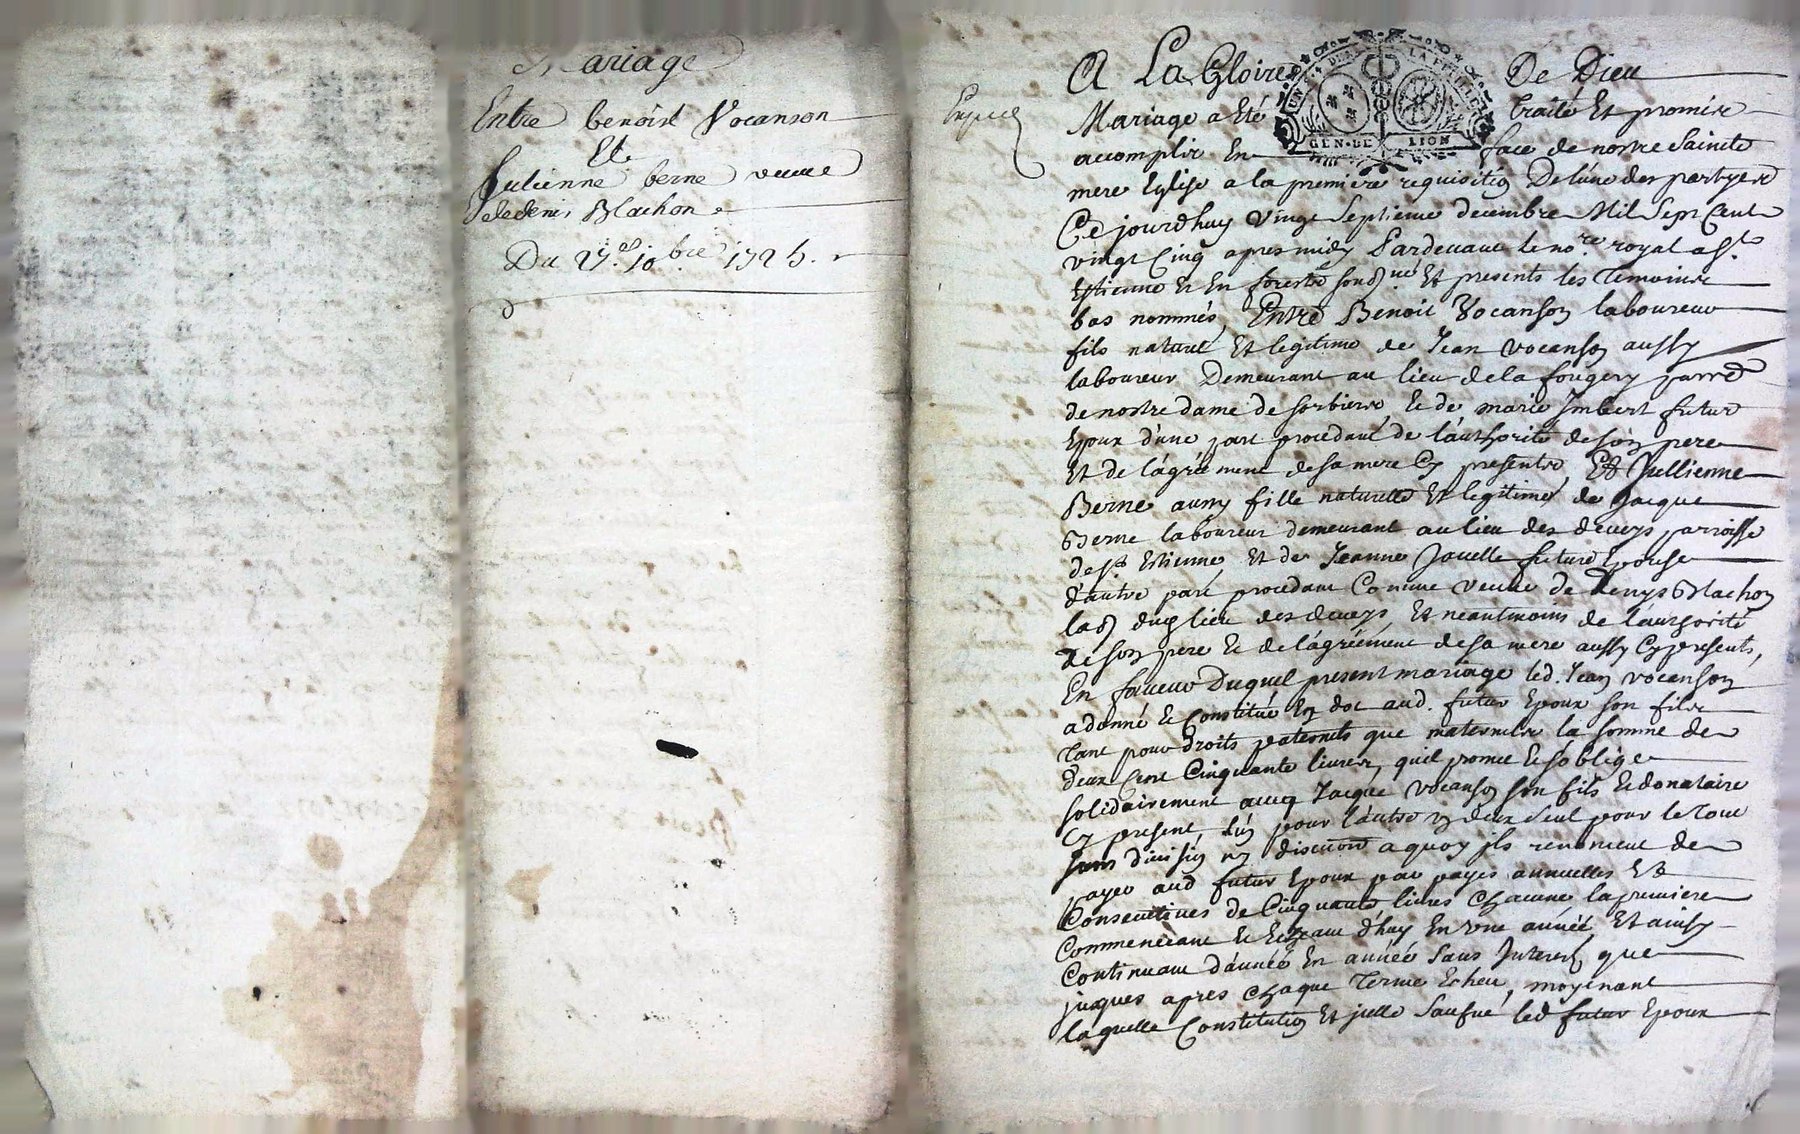 Mariage
Entre benoist Vocanson
Et
Julienne berne veuve
de denis Blachon
Du 27e 10bre 1725.
Expedié
A La Gloire De Dieu
Mariage a Eté traité Et promis
accomplir En face de nostre Sainte
mere Eglise a la premiere requisition De lune des partyes
Ce jourdhuy vingt Septieme decembre Mil Sept Cent
vingt Cinq apres midy Pardevant le nore royal a St
Estienne Et En forests sousigné Et presents les Temoins
bas nommés, Entre Benoit Vocanson laboureur
fils naturel Et legitime de Jean vocanson aussy
laboureur Demeurant au lieu de la fougery parre
de nostre dame de sorbiers, Et de marie Imbert futur
Epoux d'une part procedant de l'authorité de son pere
Et de l'agréement de sa mere Cy presents Et Jullienne
Berne aussy fille naturelle Et legitime de Jacque
Berne laboureur demeurant au lieu des deveys parroisse
de St Estienne Et de Jeanne Jouelle future Epouse
d'autre part procedant Comme veuve de denys Blachon
lad dud lieu des deveys Et neantmoins de l'authorité
de son pere Et de l'agréement de sa mere aussy Cy presents,
En faveur Duquel present mariage led. Jean vocanson
a donné Et Constitué En dot aud. futur Epoux son fils
tant pour droits paternels que maternels la somme de
deux Cent Cinquante livres, quil promet Et soblige
solidairement avecq Jacque vocanson son fils Et donataire
Cy present, l'un pour l'autre un deux seul pour le tout
sans division ny discution a quoy ils renoncent de
payer aud futur Epoux par payes annuelles Et
Consecutives de Cinquante livres Chacune la premiere
Commencant Et d'huy En une année, Et ainsy
Continuant d'année En année Sans Interest, que
jusques apres Chaque Terme Echeu, moyenant
laquelle Constitution Et jcelle Sauf led futur Epoux
GEN. DE LION